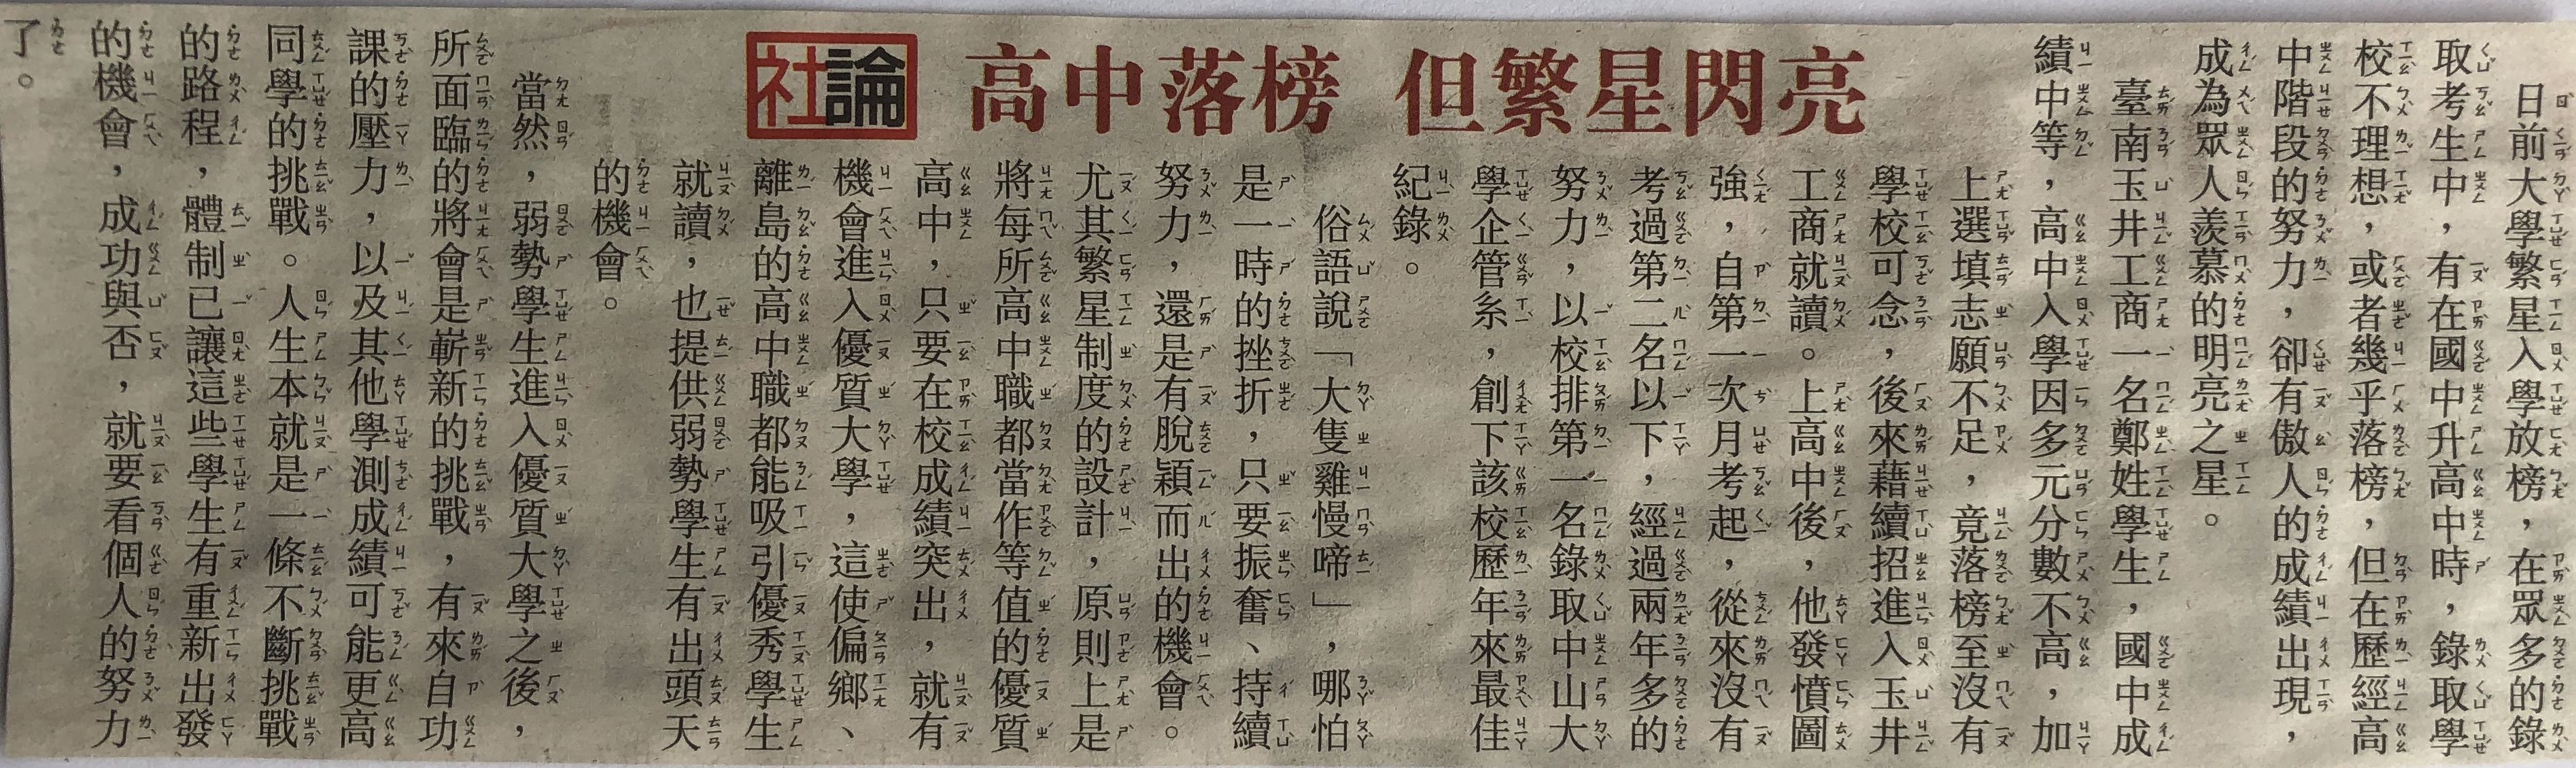 社論
高中落榜 但繁星閃亮
日前大學繁星入學放榜，在眾多的錄
取考生中，有在國中升高中時，錄取學
校不理想，或者幾乎落榜，但在歷經高
中階段的努力，卻有傲人的成績出現，
成為眾人羨慕的明亮之星。
臺南玉井工商一名鄭姓學生，國中成
績中等，高中入學因多元分數不高，加
上選填志願不足，竟落榜至沒有
學校可念，後來藉續招進入玉井
工商就讀。上高中後，他發憤圖
強，自第一次月考起，從來沒有
考過第二名以下，經過兩年多的
努力，以校排第一名錄取中山大
學企管系，創下該校歷年來最佳
紀錄。
俗語說「大隻雞慢啼」，哪怕
是一時的挫折，只要振奮、持續
努力，還是有脫穎而出的機會。
尤其繁星制度的設計，原則上是
將每所高中職都當作等值的優質
高中，只要在校成績突出，就有
機會進入優質大學，這使偏鄉、
離島的高中職都能吸引優秀學生
就讀，也提供弱勢學生有出頭天
的機會。
當然，弱勢學生進入優質大學之後，
所面臨的將會是嶄新的挑戰，有來自功
課的壓力，以及其他學測成績可能更高
同學的挑戰。人生本就是一條不斷挑戰
的路程，體制已讓這些學生有重新出發
的機會，成功與否，就要看個人的努力
了。